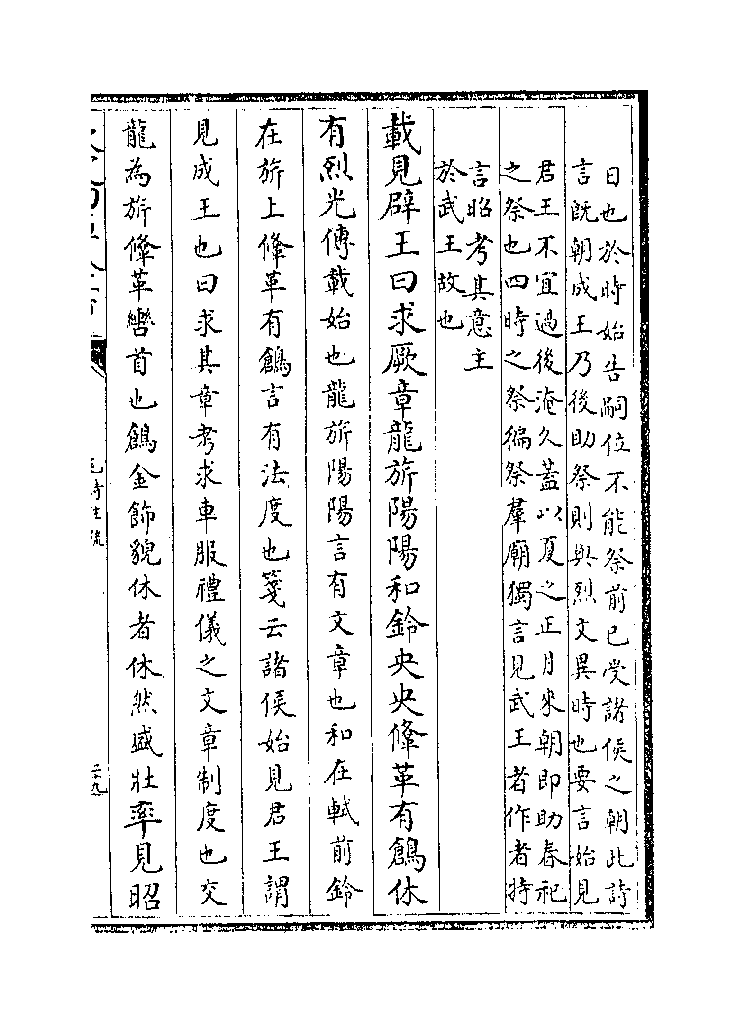 日也於時始告嗣位不能祭前已受諸侯之朝此詩
言既朝成王乃後助祭則與烈文異時也要言始見
君王不宜過後淹久蓋以夏之正月來朝即助春祀
之祭也四時之祭徧祭羣廟獨言見武王者作者特
言昭考其意主
於武王故也
載見辟王曰求厥章龍旂陽陽和鈴央央鞗革有鶬休
有烈光傳載始也龍旂陽陽言有文章也和在軾前鈴
在旂上鞗革有鶬言有法度也箋云諸侯始見君王謂
見成王也曰求其章考求車服禮儀之文章制度也交
龍為旂鞗革轡首也鶬金飾貌休者休然盛壯率見昭
毛詩注疏
三十九